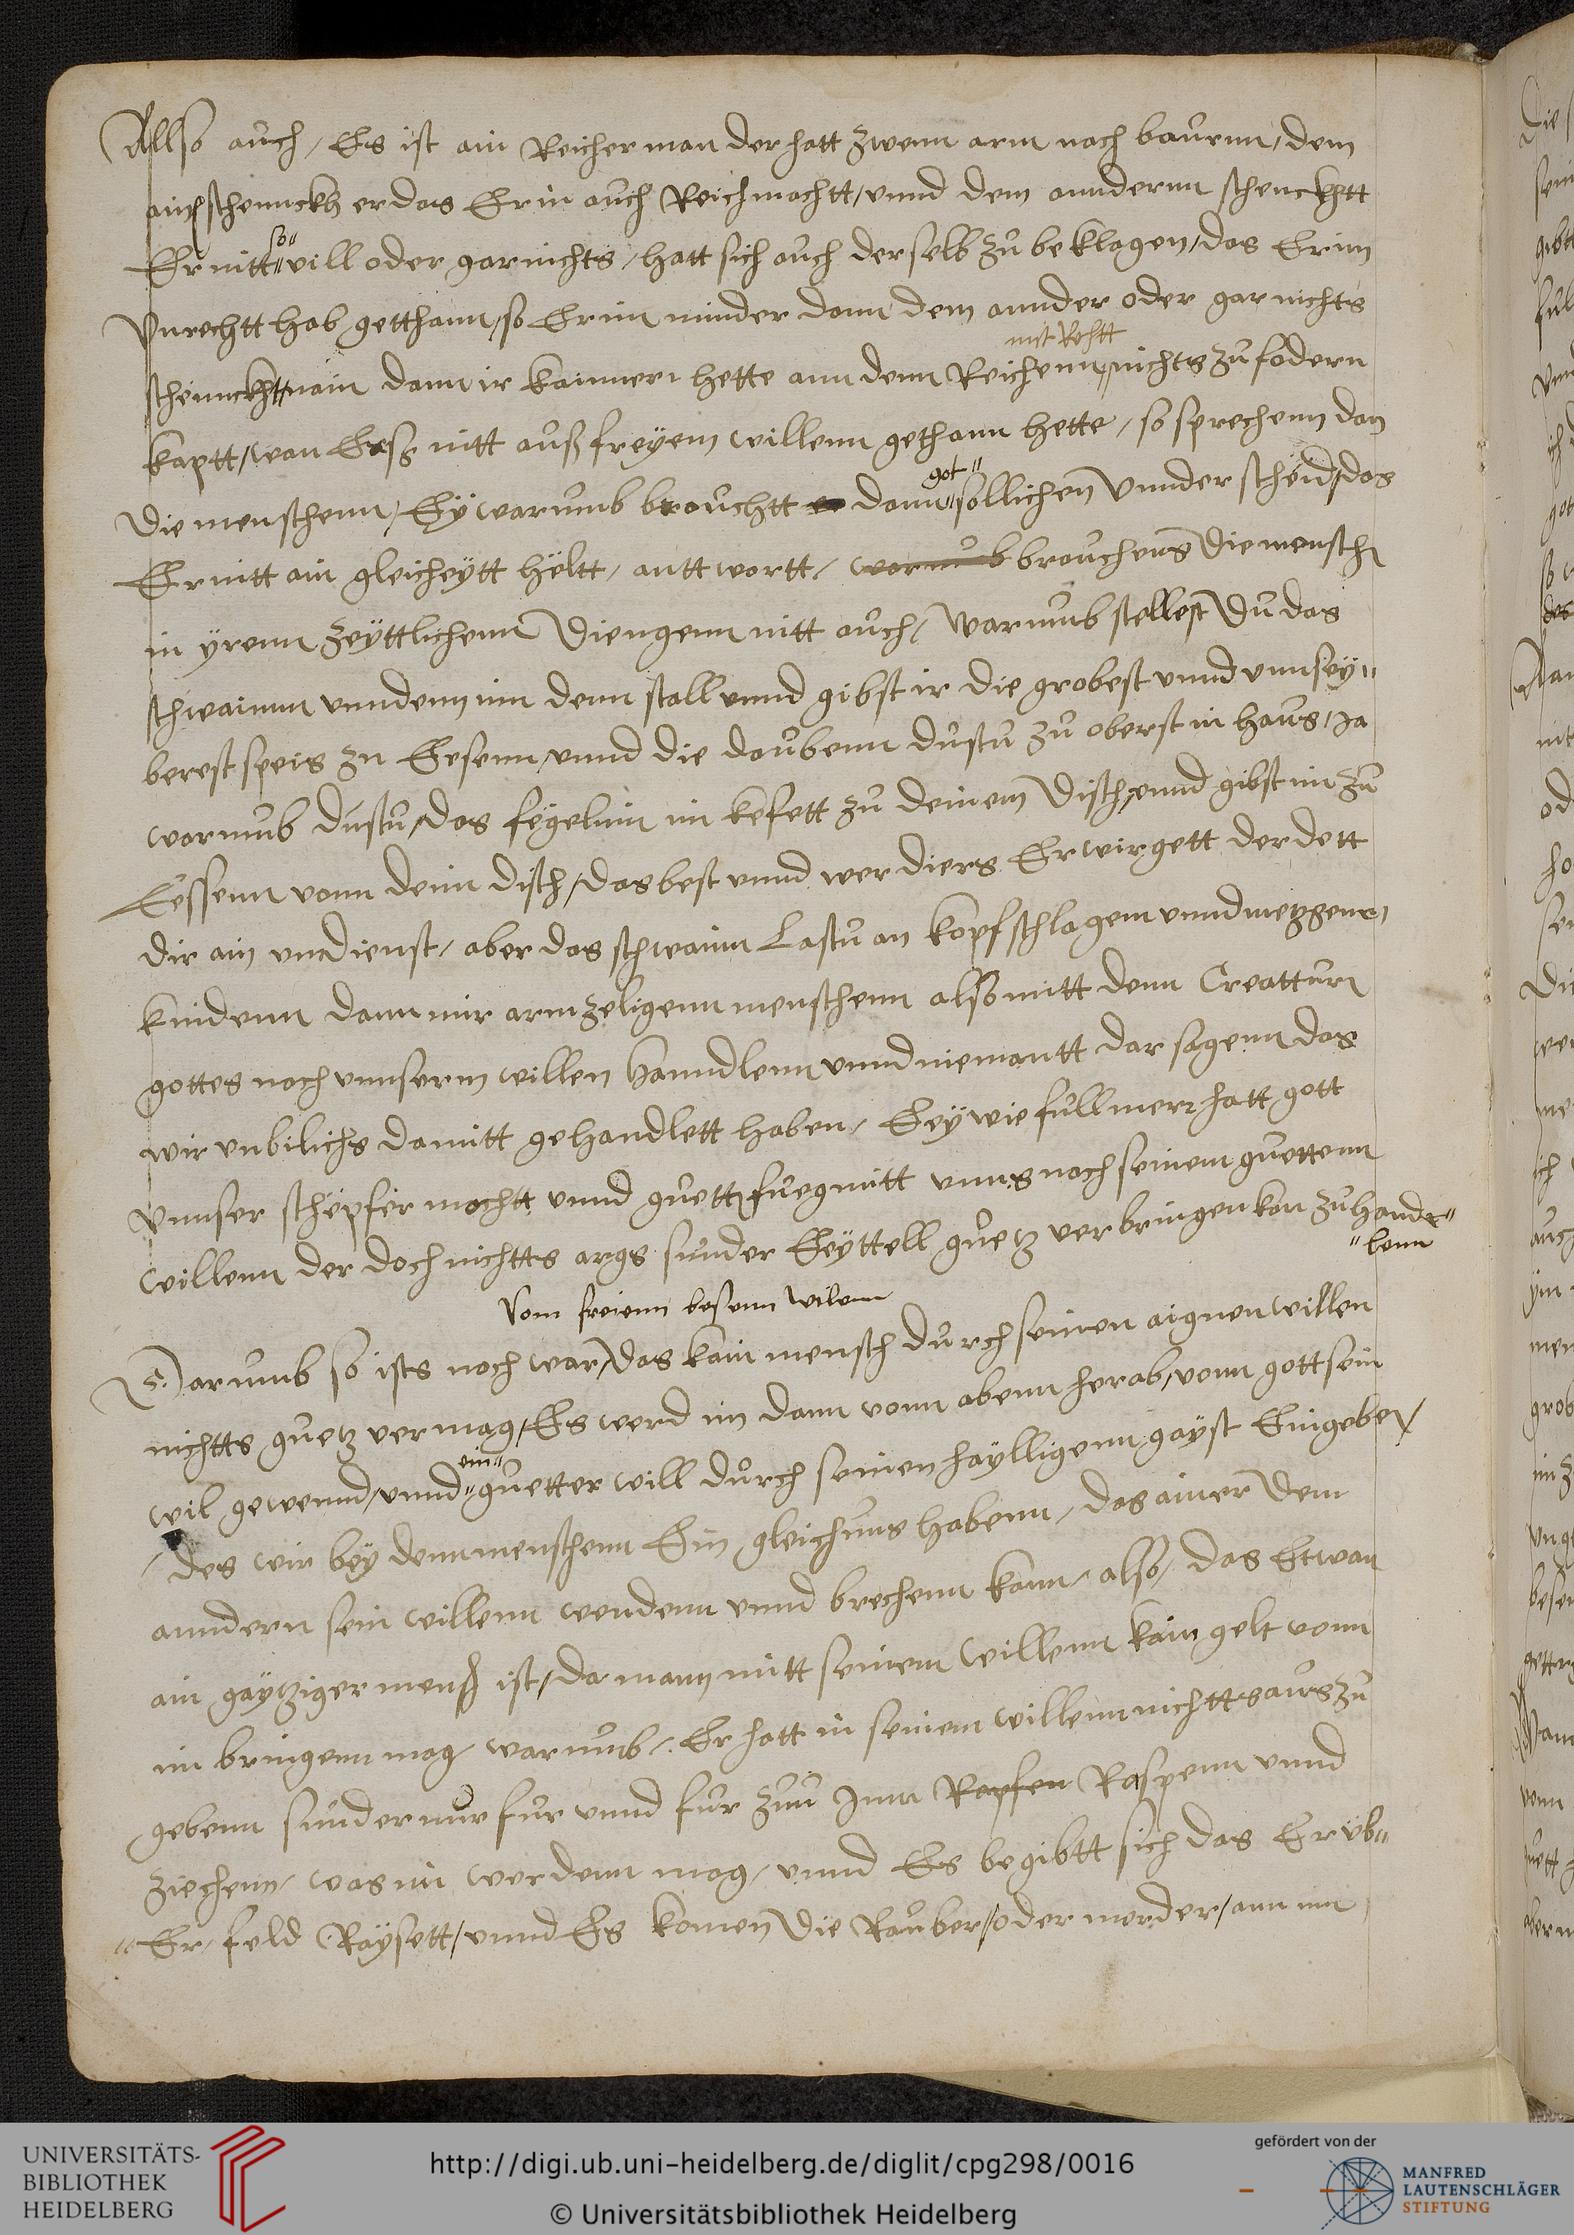 Allso auch / Es ist ain Reicher man der hatt zwenn arm nach baurnn / dem
ainen schennckh er das Er in auch Reich machtt / vnnd dem anndernn schenckhtt
Er nitt so vill oder gar nichts / hatt sich auch derselb zu beklagen / das Er im
Vnrechtt hab getthann / so Er im minder dann dem annder oder gar nichts
schennckhtt / nain dann ir kainner hette ann denn Reichenn mit Rehtt nichts zu fodern
kaptt / wan Erß nitt auß freÿem willenn gethann hette / so sprechenn dan
die menschenn / Eÿ warumb brauchtt dann got sollichen Vnnderscheid / das
Er nitt ain gleicheÿtt hÿltt / anttwortt / warumb brauchens die menschen
in ÿrenn zeÿttlichenn Diengenn nitt auch / Warumb stellest Du das
schwainn vnndenn inn denn stall vnnd gibst ir die grobest vnnd vnnsey"
berest speis zu Eesenn / vnnd die daubenn dustu zu oberst in haus / Ja
warumb dustu / das fegelinn im kefett zu deinem Disch / vnnd gibst im zu
Eessenn vonn deim disch / das best vnnd wer diers Erwirgett der dett
dir ain vndienst / aber das schwainn Lastu an kopf schlagenn vnnd metzgenn
kindenn dann mir armzeligenn menschenn also mitt denn Creatturn
gottes nach vnnserm willen hanndlenn vnnd niemantt dar sagenn das
wir vnbilichs damitt gehandlett haben / Eey wie fill merr hatt gott
vnnser schepfer machtt vnnd guett fueg mitt vnns nach seinem guettenn
willenn der doch nichtts args sunder Eeÿttell guetz verbringen kan zu hand"
"lenn
Vom freienn besenn wilenn
Darumb so ists noch war / das kain mensch durch seinen aignen willen
nichtts guetz vermag / Es werd im dann vonn abenn herab / vonn gott sein
wil gewennd / vnnd ein guetter will durch seinen haylligenn gayst Eingeben /
/ des wir beÿ denn menschenn Ein gleichnus habenn / das ainer dem
anndern sein willenn wendenn vnnd brechenn kann / also / das Etwan
ain gaytziger mensch ist / da mann mitt seinem willenn kain gelt vonn
im bringenn mag / warumb / Er hatt in seinem willenn nichtts aus zu
gebenn sunder nur fur vnnd fur zuu Jmm Rapfen Raspenn vnnd
ziechenn / was im werdenn mag / vnnd Es begibtt sich das Er vb"
"Er feld Raysett / vnnd Es komen die Rauber / oder merder / ann im
UNIVERSITÄTS-
BIBLIOTHEK
HEIDELBERG
http://digi.ub.uni-heidelberg.de/diglit/cpg298/0016
© Universitätsbibliothek Heidelberg
gefördert von der
MANFRED
LAUTENSCHLÄGER
STIFTUNG